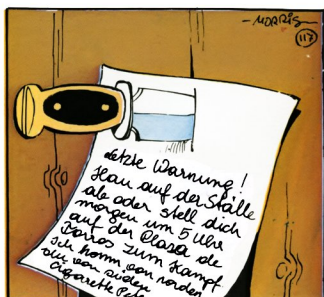 - MORRIS -
117
Letzte Warnung!
Hau auf der Stelle
ab oder stell dich
morgen um 5 Uhr
auf der Plaza de
Toros zum Kampf
Ich komm von norden
du von süden
Cigarette